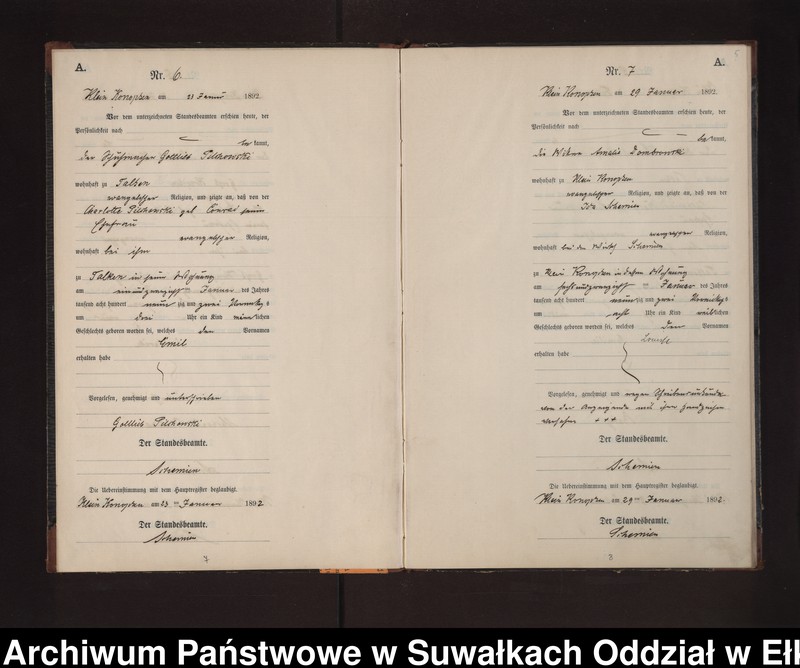 A.
Nr. 6
Klein Konopken am 23 Januar 1892
Vor dem unterzeichneten Standesbeamten erschien heute, der
Persönlichkeit nach
be kannt,
der Gottlieb Pilchowski
wohnhaft zu Talken
evangelischer Religion, und zeigte an, daß von der
Charlotte Pilchowski geb. seiner
Ehefrau
evangelischer Religion,
wohnhaft bei ihm
zu Talken in seiner Wohnung
am einundzwanzigsten Januar des Jahres
tausend acht hundert neun zig und zwei Vormittags
um drei Uhr ein Kind männlichen
Geschlechts geboren worden sei, welches den Vornamen
Emil
erhalten habe
Vorgelesen, genehmigt und unterschrieben
Gottlieb Pilchowski
Der Standesbeamte.
Schemien
Die Uebereinstimmung mit dem Hauptregister beglaubigt.
Klein Konopken am 23ten Januar 1892
Der Standesbeamte.
Schemien
7
A.
Nr. 7
Klein Konopken am 29 Januar 1892.
Vor dem unterzeichneten Standesbeamten erschien heute, der
Persönlichkeit nach
be kannt,
die Wittwe Amalie Dombrowski
wohnhaft zu Klein Konopken
evangelischer Religion, und zeigte an, daß von der
Ida Schemien
evangelischer Religion,
wohnhaft bei dem Wirth Schemien
zu Klein Konopken in dessen Wohnung
am sechsundzwanzigsten Januar des Jahres
tausend acht hundert neun zig und zwei Vormittags
um acht Uhr ein Kind weiblichen
Geschlechts geboren worden sei, welches den Vornamen
erhalten habe
Vorgelesen, genehmigt und wegen Schreibensunkunde
von der Anzeigende mit ihrem Handzeichen
versehen + + +
Der Standesbeamte.
Schemien
Die Uebereinstimmung mit dem Hauptregister beglaubigt.
Klein Konopken am 29ten Januar 1892.
Der Standesbeamte.
Schemien
8
Archiwum Państwowe w Suwałkach Oddział w Eł